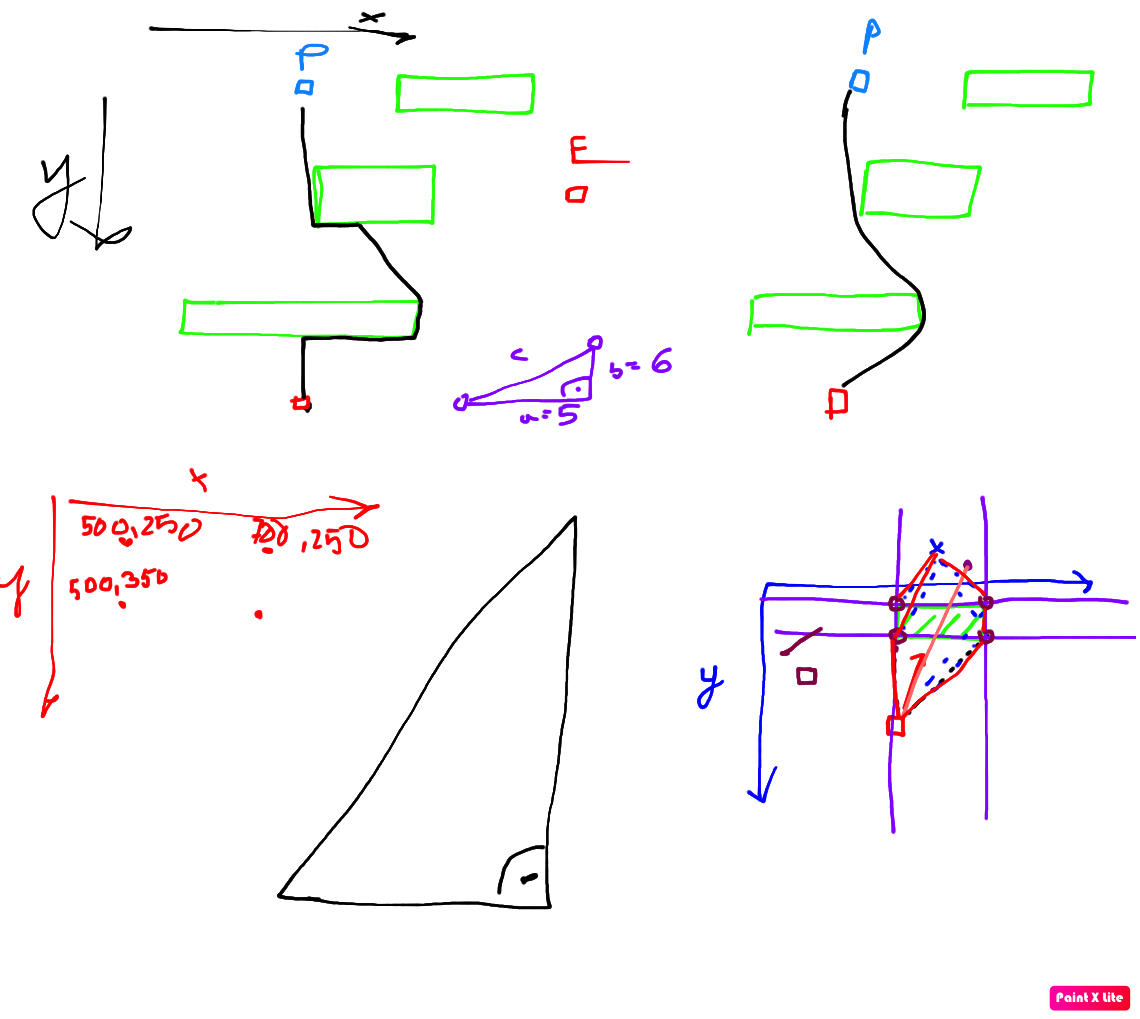 x
P
P
y
E
c
b=6
a=5
x
500,250
700,250
y
500,350
x
y
Paint X Lite